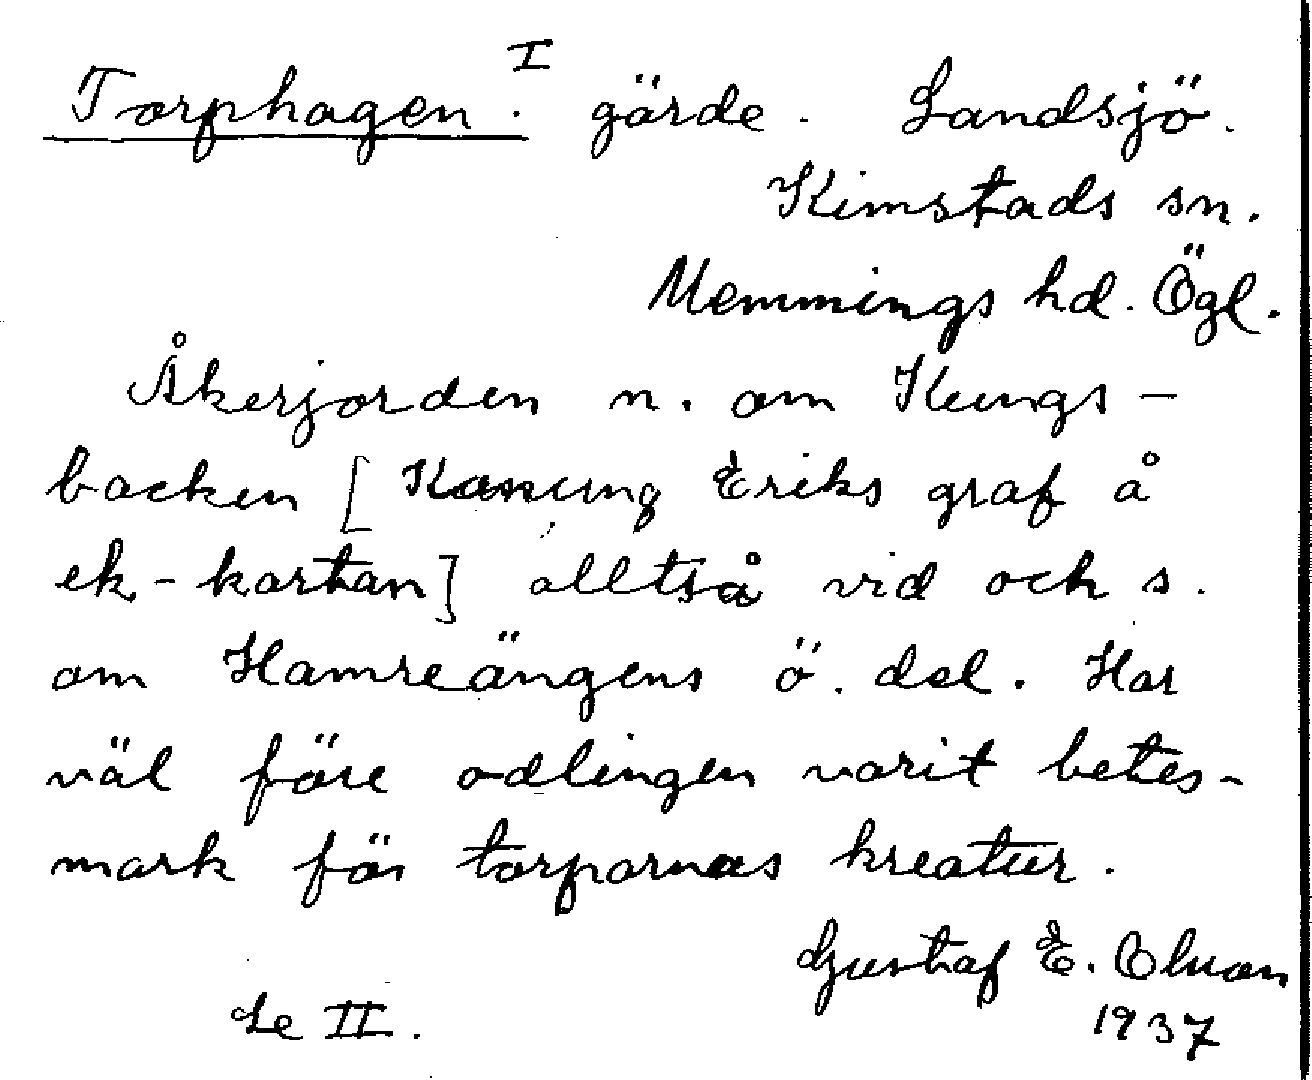 Torphagen.ᴵ gärde. Landsjö.
Kimstads sn.
Memmings hd. Ögl.
Åkerjorden n. om Kungs-
backen [Konung Eriks graf å
ek-kartan] alltså vid och s.
om Hamreängens ö. del. Har
väl före odlingen varit betes-
mark för torparnas kreatur.
Gustaf E. Olson
1937
Se II.